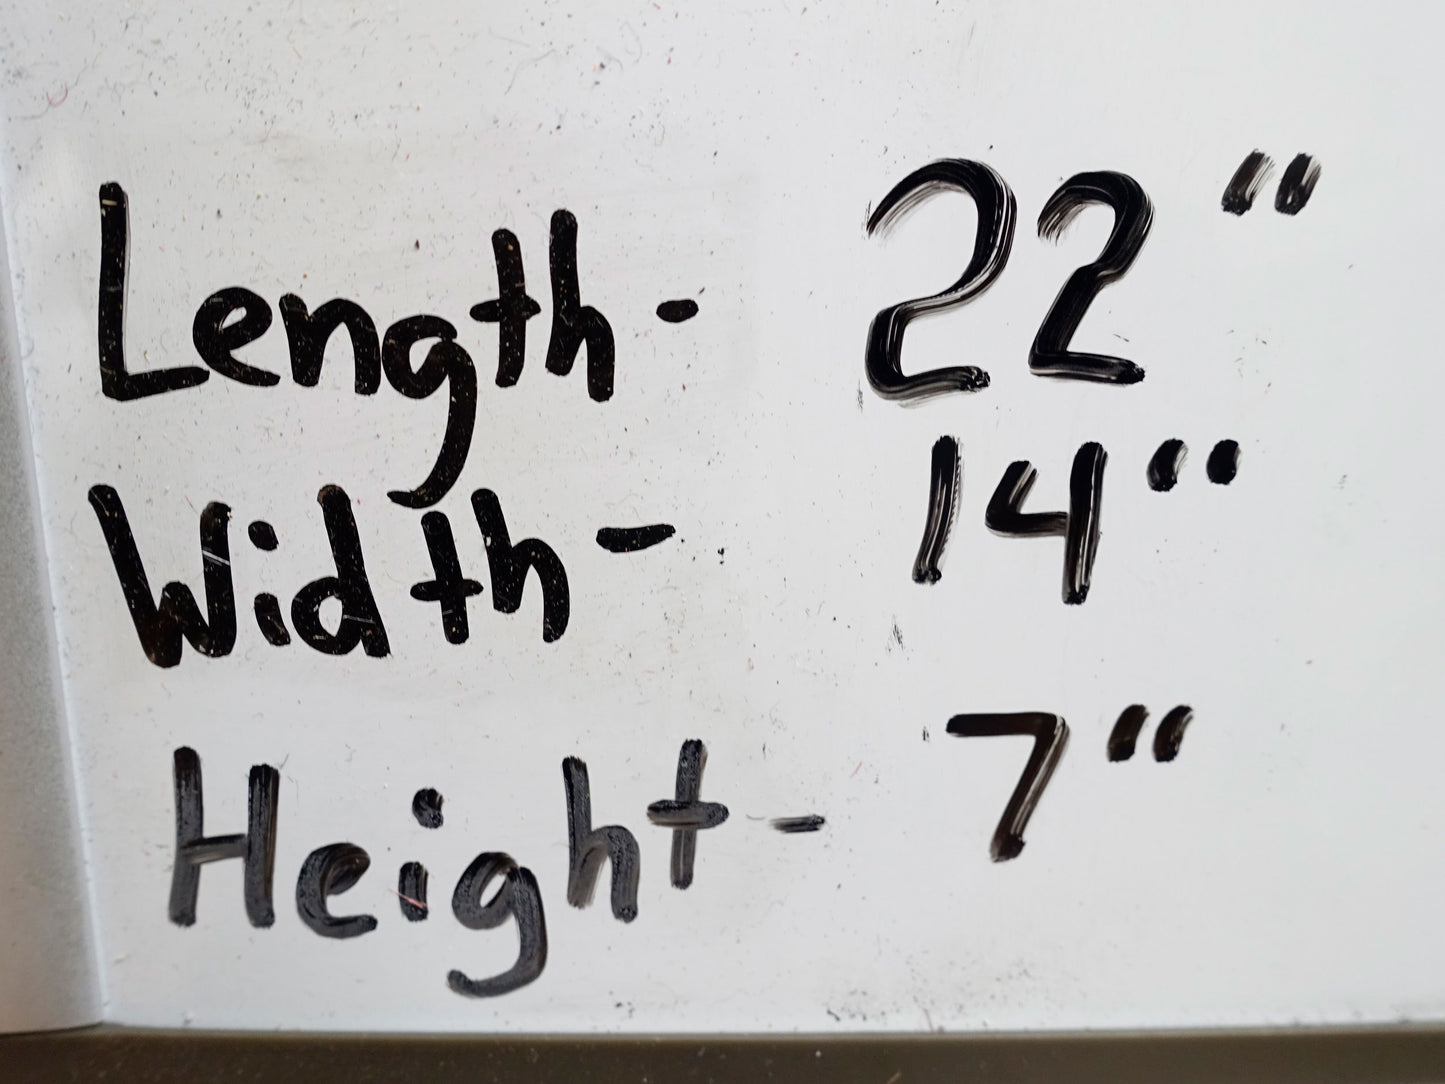 Length- 22"
Width- 14"
Height- 7"